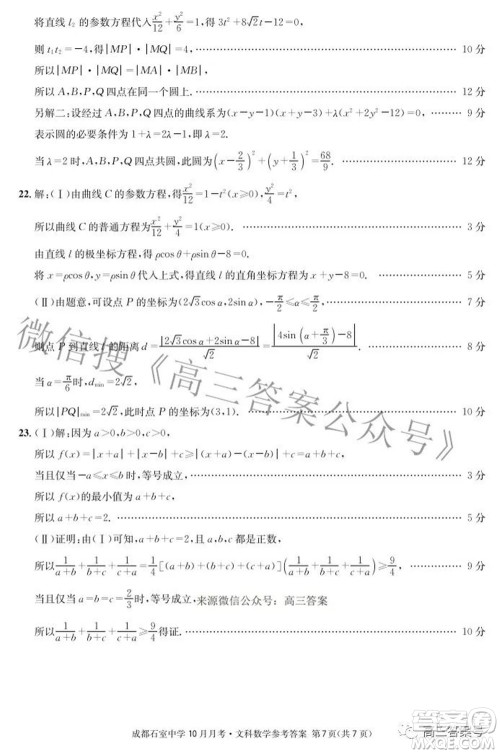 将直线 l₂ 的参数方程代入 x²/12 + y²/6 = 1,得
则 t₁t₂ = -4,得 |MP|·|MQ| = 4. 10 分
所以 |MP|·|MQ| = |MA|·|MB|,
所以 A,B,P,Q 四点在同一个圆上. 12 分
另解二:设经过 A,B,P,Q 四点的曲线系为 (x-y-1)(x+y-3)+λ(x²+2y²-12)=0, 9 分
表示圆的必要条件为 1+λ=-1+2λ,得 λ=2.
当 λ=2 时,方程化为圆 (x-2/3)²+(y+1/3)²=68/9. 12 分
22. 解:(Ⅰ)由曲线 C 的参数方程,得 x²/12=1-t²(x≥0), y²/4=t²,
所以曲线 C 的普通方程为 x²/12+y²/4=1(x≥0). 3 分
由直线 l 的极坐标方程,得 ρcos θ+ρsin θ-8=0.
将 x=ρcos θ,y=ρsin θ 代入上式,得直线 l 的直角坐标方程为 x+y-8=0. 5 分
(Ⅱ)由题意,可设点 P 的坐标为(2√3cos α,2sin α),-π/2≤α≤π/2, 7 分
则点 P 到直线 l 的距离 d=|2√3cos α+2sin α-8|/√2=|4sin(α+π/3)-8|/√2. 8 分
当 α=π/6 时,dmin=2√2,
所以|PQ|min=2√2,此时点 P 的坐标为(3,1). 10 分
23. (Ⅰ)解:因为 a>0,b>0,c>0,
所以 f(x)=|x+a|+|x-b|+c≥|(x+a)-(x-b)|+c=a+b+c, 3 分
当且仅当 -a≤x≤b 时,等号成立,
所以 f(x)的最小值为 a+b+c,
所以 a+b+c=2. 5 分
(Ⅱ)证明:由(Ⅰ)可得,a+b+c=2,且 a,b,c 都是正数,
所以 1/(a+b)+1/(b+c)+1/(c+a)=1/4[(a+b)+(b+c)+(c+a)][1/(a+b)+1/(b+c)+1/(c+a)]≥9/4, 9 分
当且仅当 a=b=c=2/3 时,等号成立,
来源微信公众号:高三答案
所以 1/(a+b)+1/(b+c)+1/(c+a)≥9/4 得证. 10 分
微信搜《高三答案公众号》
成都石室中学 10 月月考·文科数学参考答案 第 7 页(共 7 页)
高三答案号